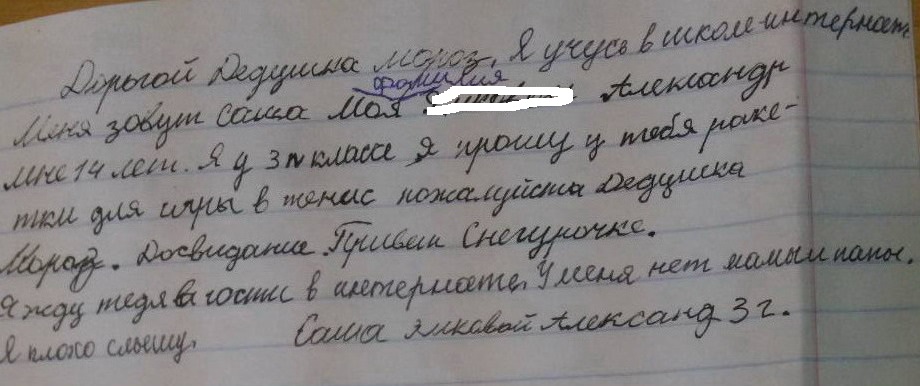 Дорогой Дедушка мороз. Я учусь в школе-интернате
фамилия
Меня зовут Саша Моя Александр
мне 14 лет. Я у 3 классе я прошу у тебя раке-
тки для игры в тенис пожалуйста Дедушка
Мороз. Досвидание. Привет Снегурочке.
Я жду тедя в гости в интернате. У меня нет мамы и папы.
Я плохо слышу. Саша Александ 3 г.